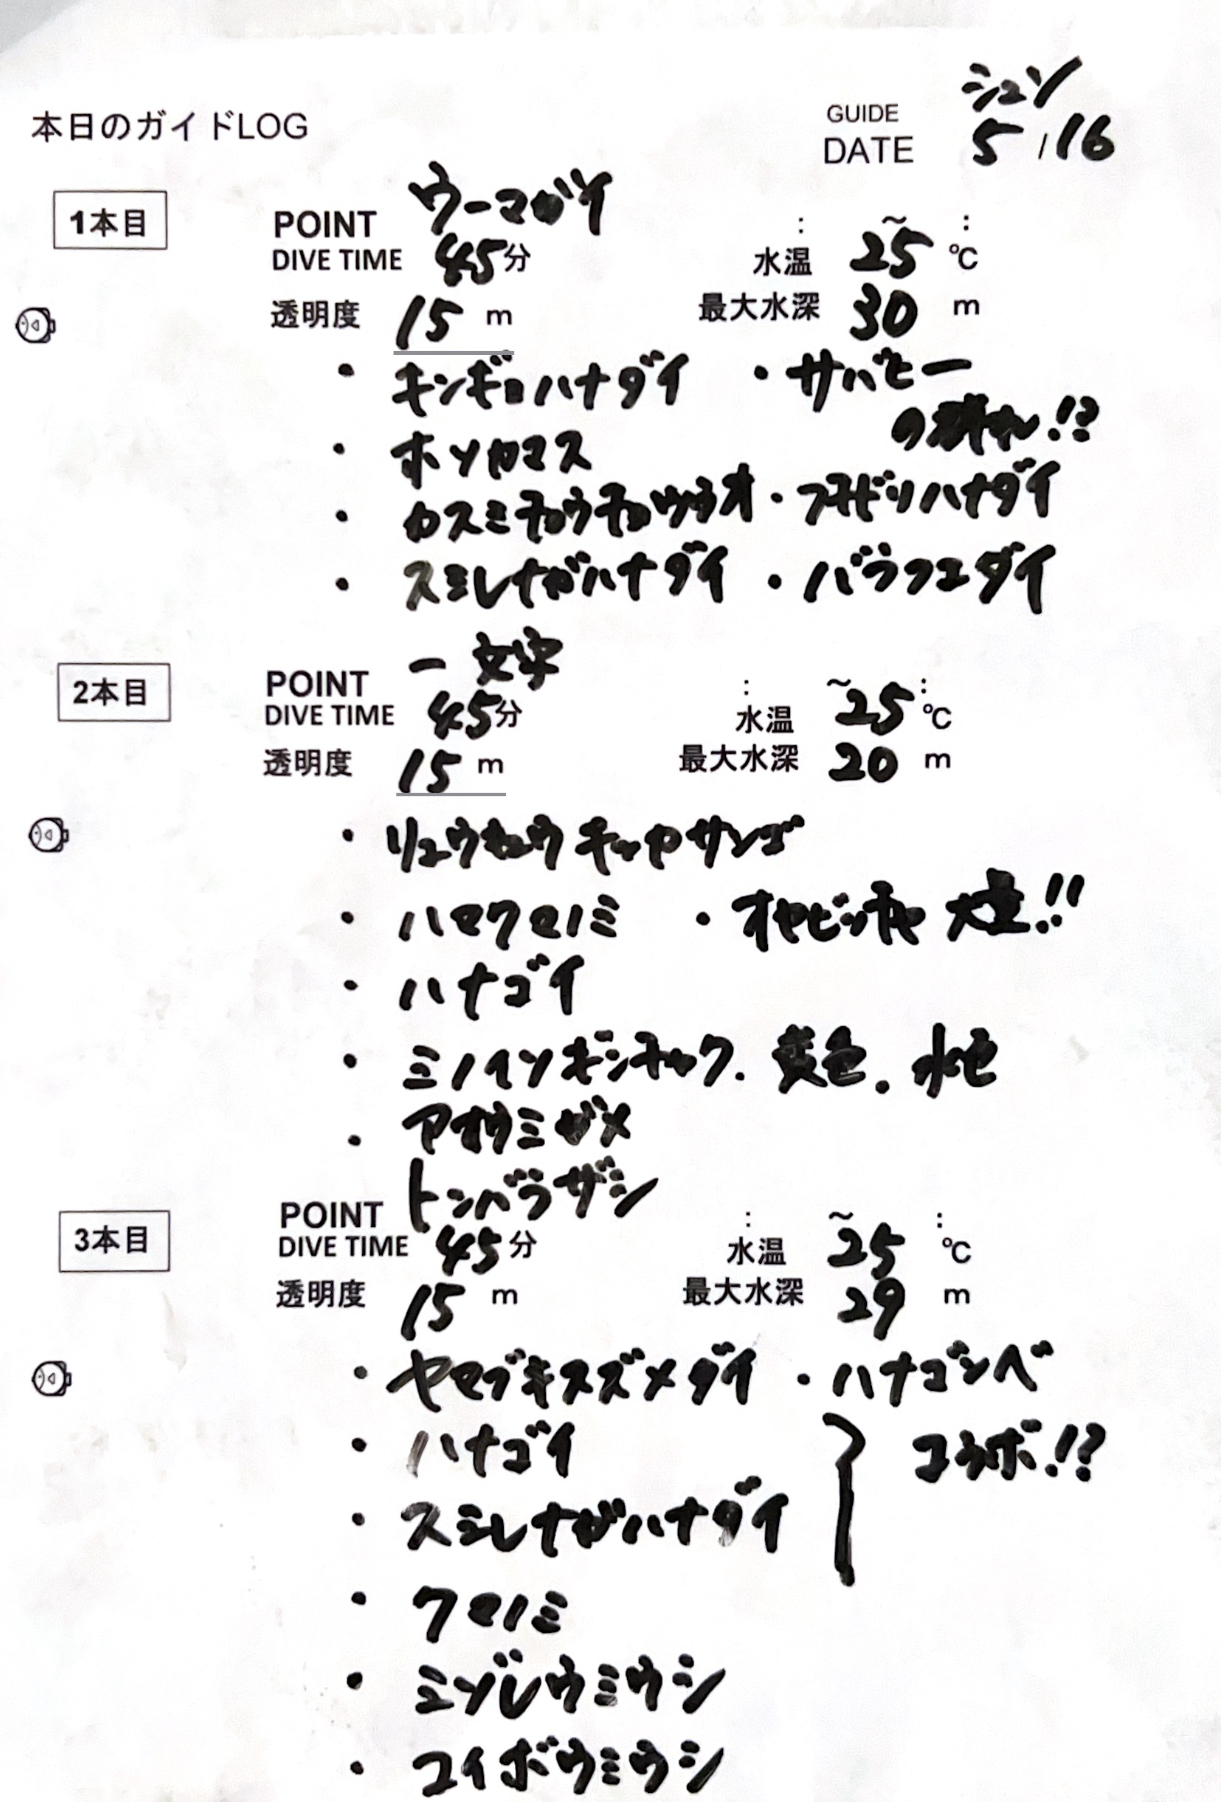 本日のガイドLOG
GUIDE シュン
DATE 5/16
1本目
POINT ウーマガイ
: ～ :
DIVE TIME 45分 水温 25℃
透明度 15m 最大水深 30m
・キンギョハナダイ ・サバヒー
の群れ!?
・ホソカマス
・カスミチョウチョウウオ ・フチドリハナダイ
・スミレナガハナダイ ・バラフエダイ
2本目
POINT 一文字
: ～ :
DIVE TIME 45分 水温 25℃
透明度 15m 最大水深 20m
・リュウキュウキッカサンゴ
・ハマクマノミ ・オヤビッチャ 大量!!
・ハナゴイ
・ミノイソギンチャク. 黄色. 水色
・アオウミガメ
3本目
POINT トンバラザシ
: ～ :
DIVE TIME 45分 水温 25℃
透明度 15m 最大水深 29m
・ヤマブキスズメダイ ・ハナゴンベ
・ハナゴイ
コラボ!?
・スミレナガハナダイ
・クマノミ
・ミゾレウミウシ
・コイボウミウシ